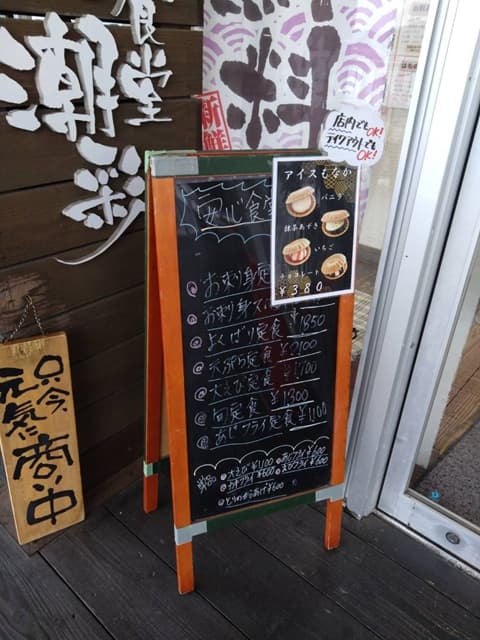 食堂
潮
料
新鮮
店内でもOK!
テイクアウトでもOK!
アイスもなか
バニラ
抹茶あずき
いちご
チョコレート
¥380
食堂
お刺身定
お刺身
よくばり定食 ¥1850
天ぷら定食 ¥2100
大えび定食 ¥1700
旬定食 ¥1300
あじフライ定食 ¥1100
大えび¥1100 あじフライ¥600
カキフライ¥600
とりのからあげ¥600
只今、
元気に
商い中